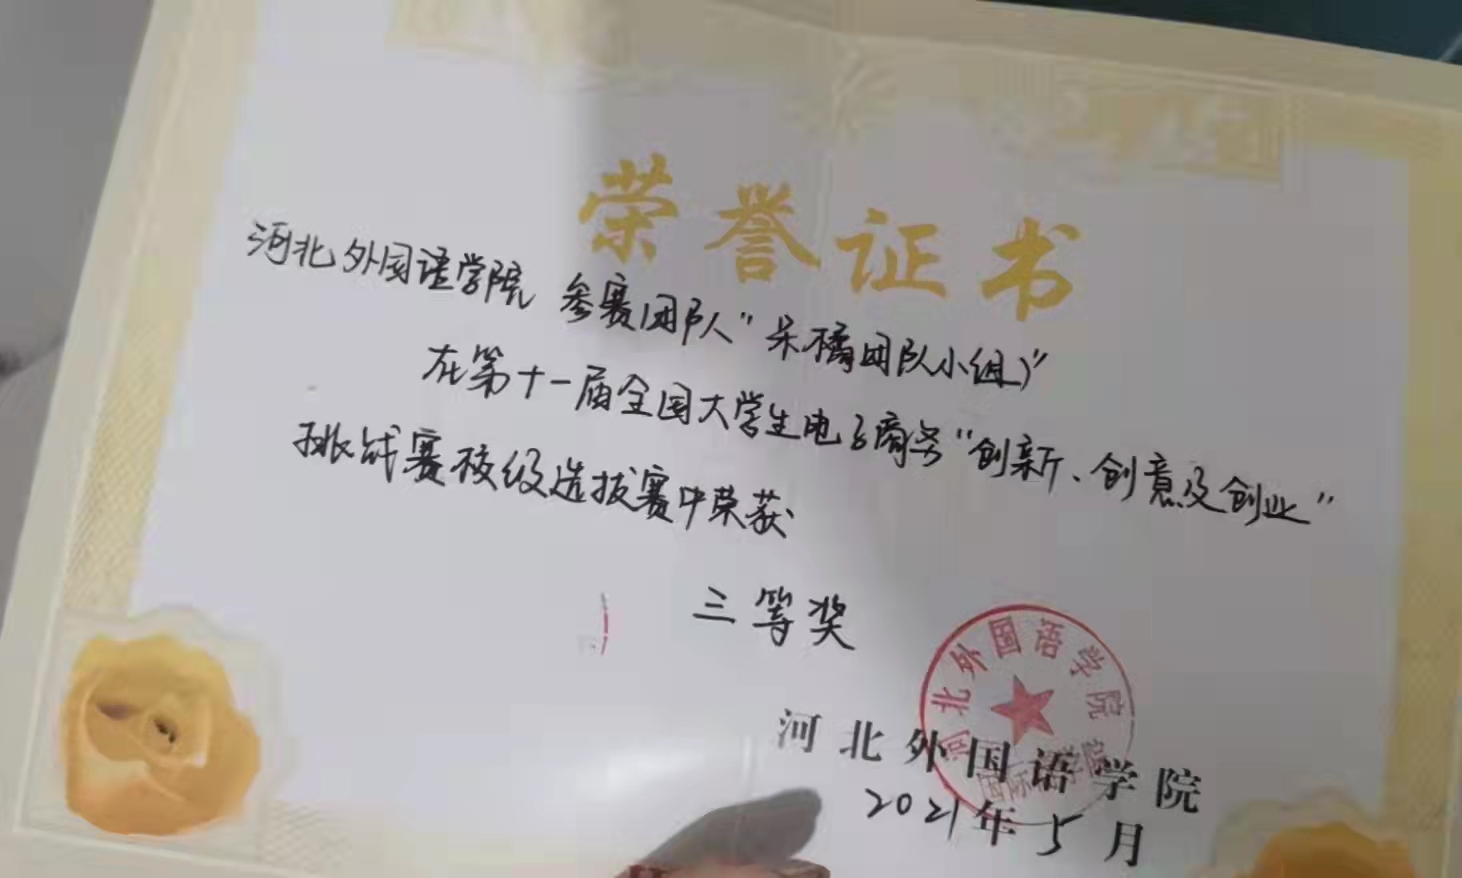 荣誉证书
河北外国语学院 参赛团队"呆橘团队小组)"
在第十一届全国大学生电子商务"创新、创意及创业"
挑战赛校级选拔赛中荣获
三等奖
河北外国语学院
河北外国语学院
2021年5月